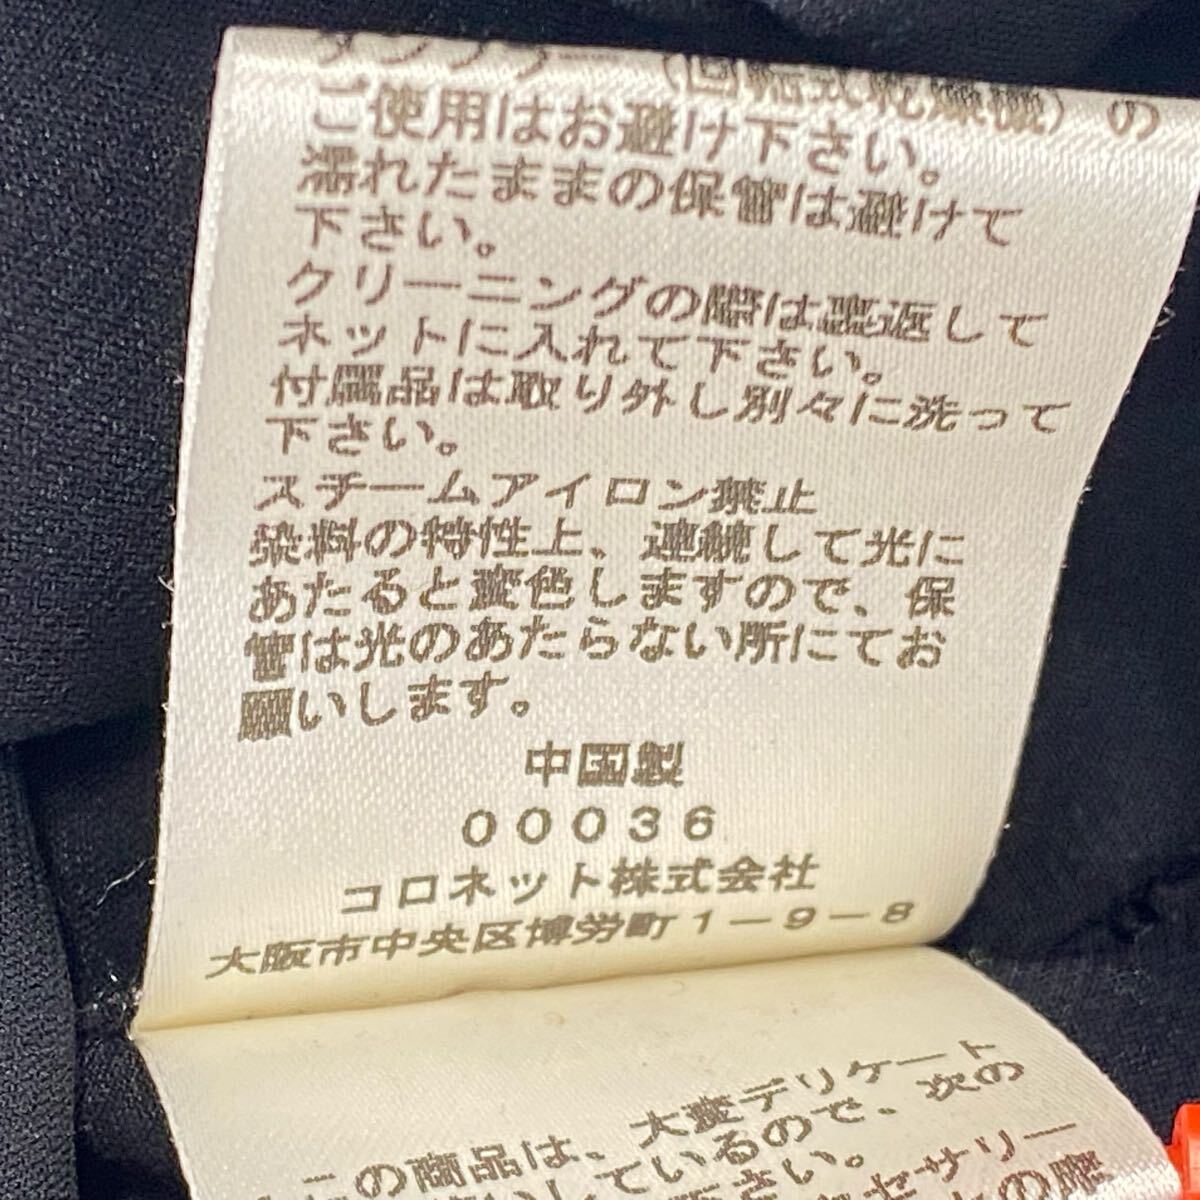 タンブラー(回転式乾燥機)の
ご使用はお避け下さい。
濡れたままの保管は避けて
下さい。
クリーニングの際は裏返して
ネットに入れて下さい。
付属品は取り外し別々に洗って
下さい。
スチームアイロン禁止
染料の特性上、連続して光に
あたると変色しますので、保
管は光のあたらない所にてお
願いします。
中国製
00036
コロネット株式会社
大阪市中央区博労町1-9-8
この商品は、大変デリケート
しているので、次の
下さい。
セサリー